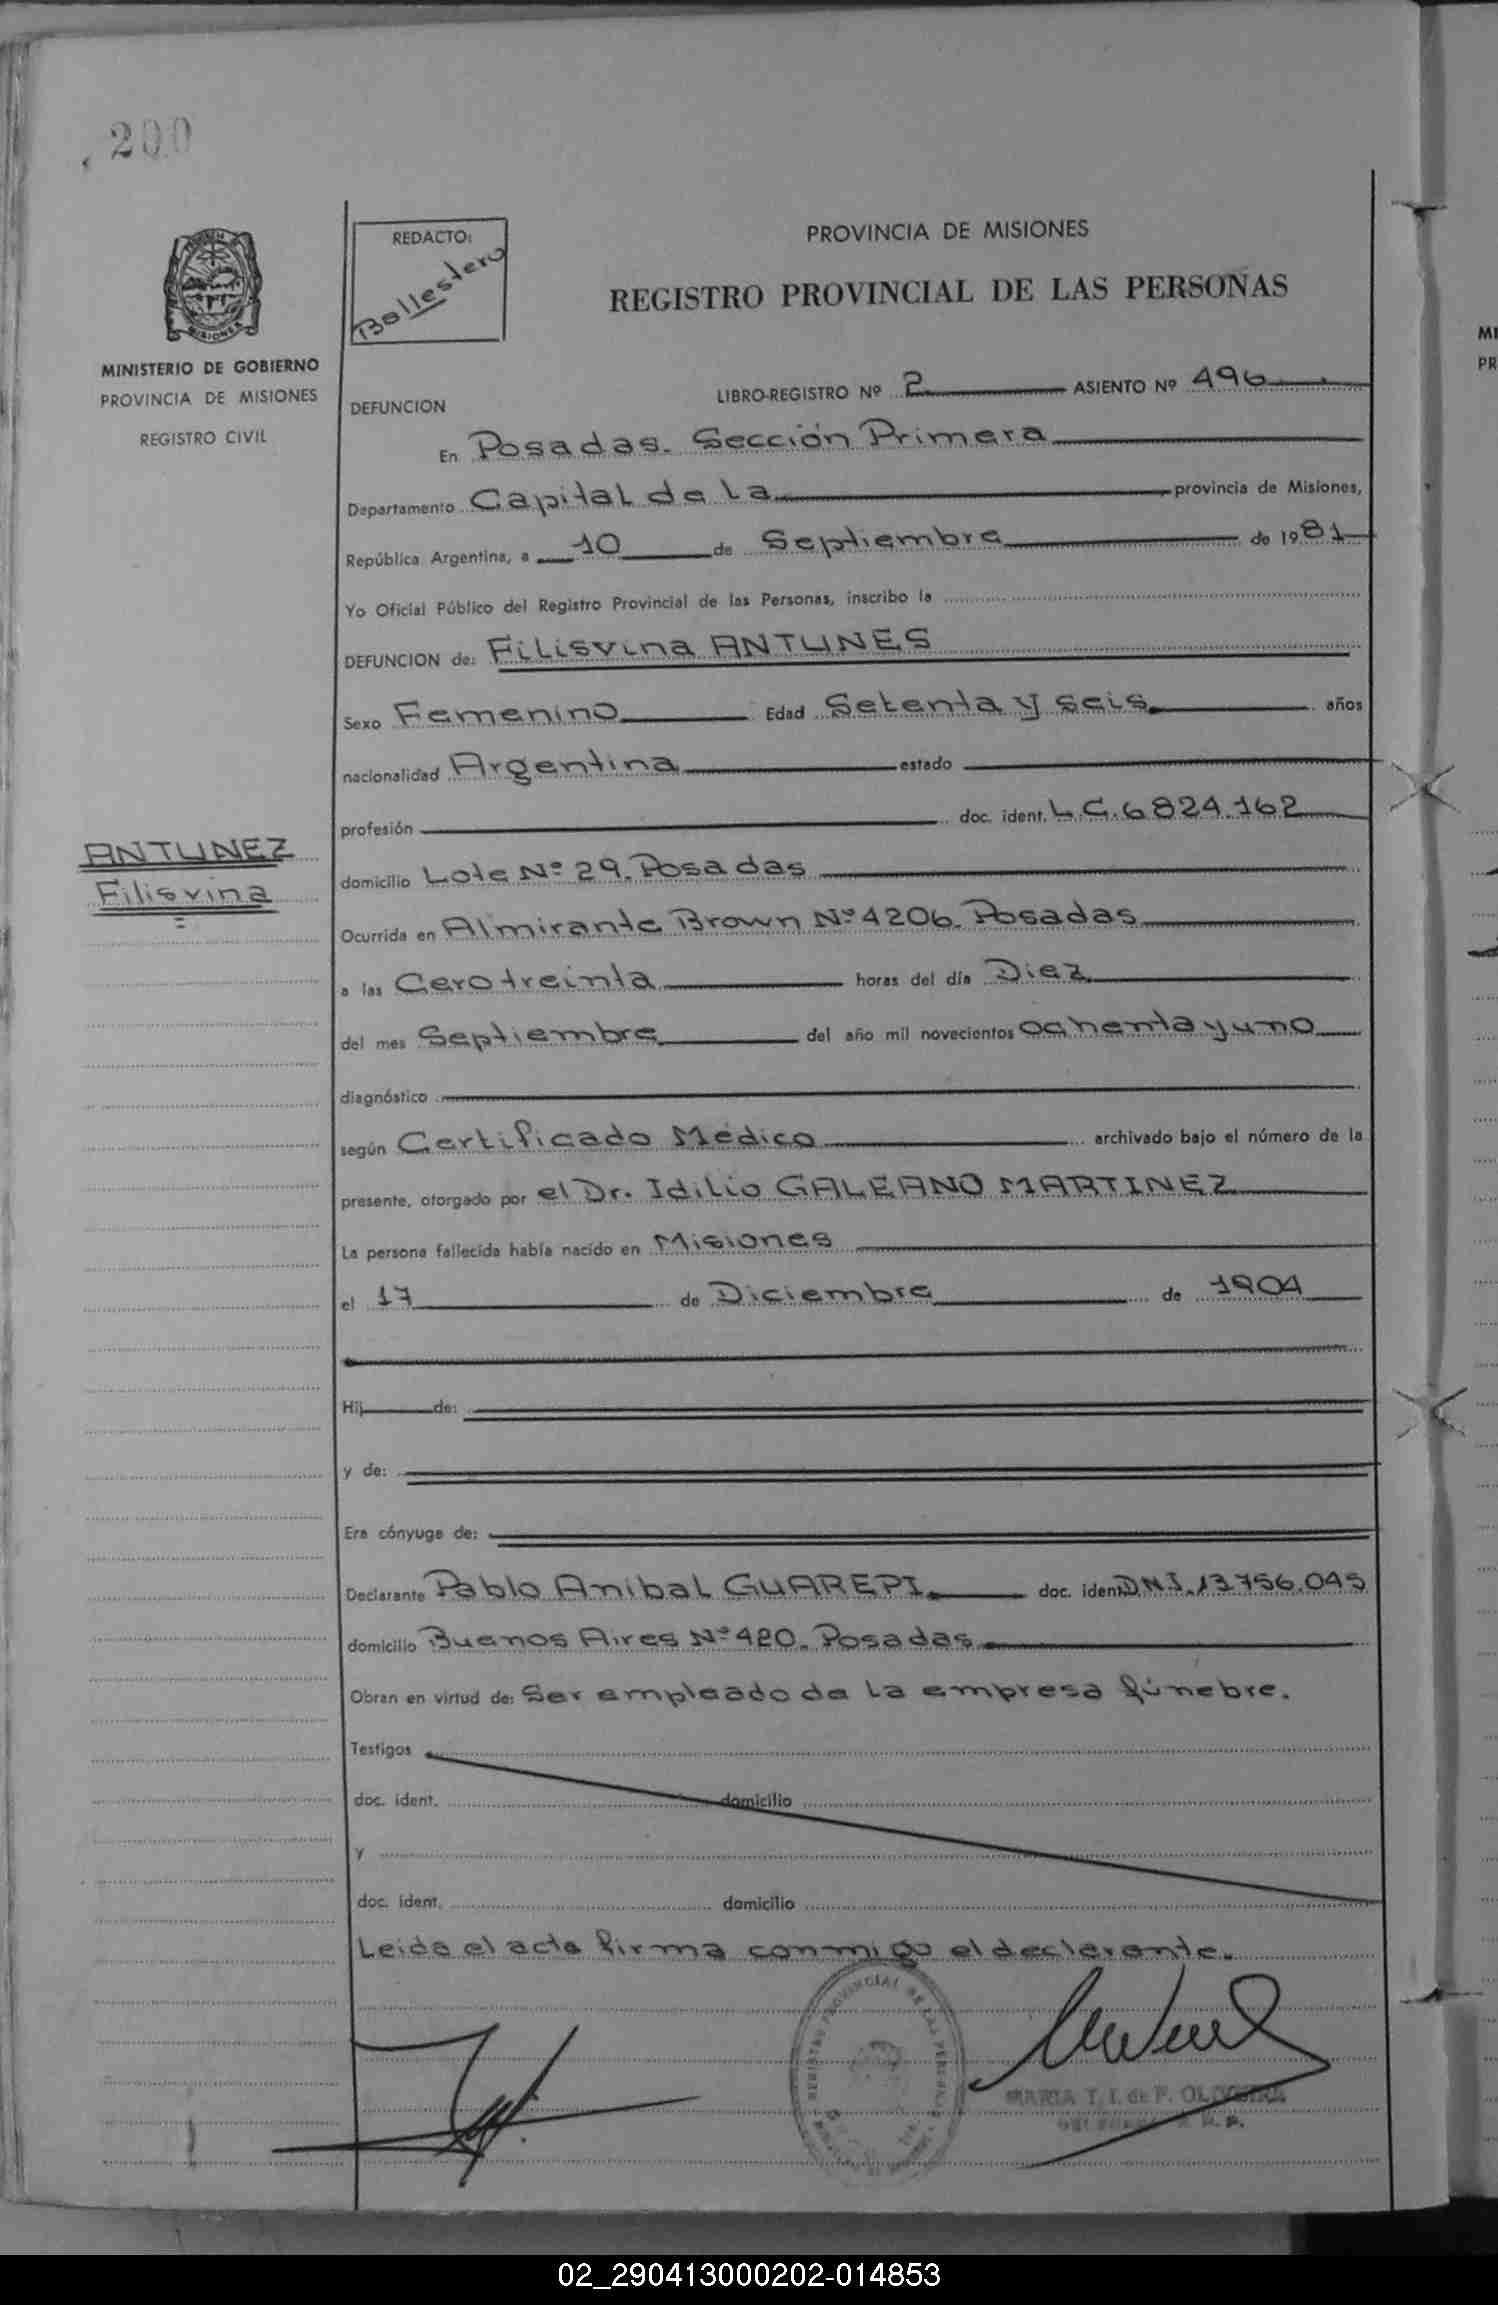 200
REDACTO:
Ballestero
PROVINCIA DE MISIONES
REGISTRO PROVINCIAL DE LAS PERSONAS
MISIONES
MINISTERIO DE GOBIERNO
PROVINCIA DE MISIONES
REGISTRO CIVIL
DEFUNCION LIBRO-REGISTRO Nº 2 ASIENTO Nº 496
En Posadas. Sección Primera
Departamento Capital de La provincia de Misiones,
República Argentina, a 10 de Septiembre de 1981
Yo Oficial Público del Registro Provincial de las Personas, inscribo la
DEFUNCION de: Filisvina ANTUNES
Sexo Femenino Edad Setenta y seis años
nacionalidad Argentina estado
profesión doc. ident. L.C. 6824.162
ANTUNEZ
Filisvina
domicilio Lote Nº 29. Posadas
Ocurrida en Almirante Brown Nº 4206. Posadas
a las Cero treinta horas del día Diez
del mes Septiembre del año mil novecientos ochenta y uno
diagnóstico
según Certificado Médico archivado bajo el número de la
presente, otorgado por el Dr. Idilio GALEANO MARTINEZ
La persona fallecida había nacido en Misiones
el 17 de Diciembre de 1904
Hij de:
y de:
Era cónyuge de:
Declarante Pablo Anibal GUAREPI doc. ident. D.N.I. 13.756.045
domicilio Buenos Aires Nº 420. Posadas
Obran en virtud de: Ser empleado de La empresa fúnebre.
Testigos
doc. ident. domicilio
y
doc. ident. domicilio
Leida el acta firma conmigo el declarante.
REGISTRO PROVINCIAL DE LAS PERSONAS
MARIA T. I. de F. OLIVEIRA
MI
PR
02_290413000202-014853